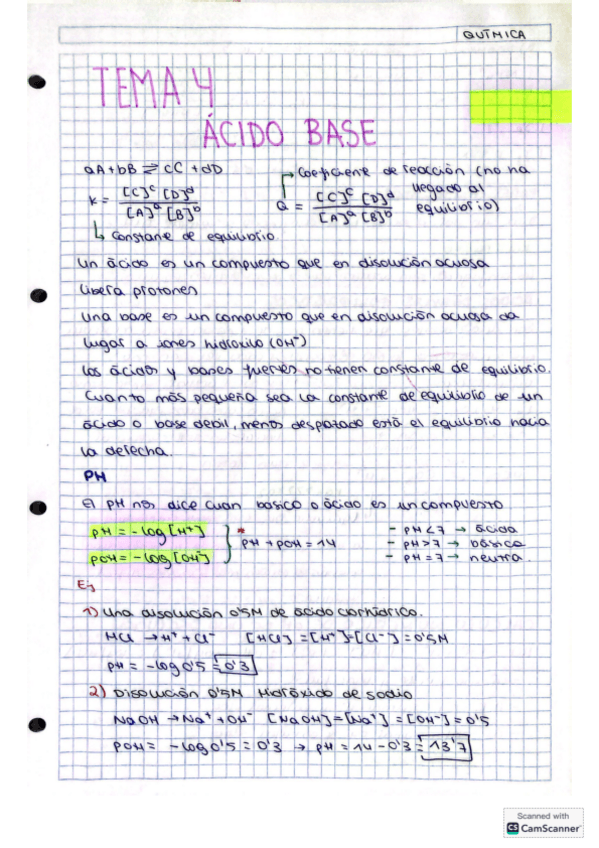 QUÍMICA
TEMA 4
ÁCIDO BASE
aA + bB ⇌ cC + dD
Coeficiente de reacción (no ha llegado al equilibrio)
K = [C]^c [D]^d / [A]^a [B]^b
Q = [C]^c [D]^d / [A]^a [B]^b
↳ Constante de equilibrio.
Un ácido es un compuesto que en disolución acuosa
libera protones
Una base es un compuesto que en disolución acuosa da
lugar a iones hidroxilo (OH⁻)
Los ácidos y bases fuertes no tienen constante de equilibrio.
Cuanto más pequeña sea la constante de equilibrio de un
ácido o base debil, menos desplazado está el equilibrio hacia
la derecha.
PH
El PH nos dice cuan basico o ácido es un compuesto
pH = -log [H+]
pOH = -log [OH⁻]
* pH + pOH = 14
- pH<7 → ácida
- pH>7 → básica
- pH=7 → neutra.
Ej
1) Una disolución 0'5M de ácido clorhídrico.
HCl → H⁺ + Cl⁻ [HCl] = [H⁺]=[Cl⁻] = 0'5M
pH = -log 0'5 = 0'3
2) Disolución 0'5M Hidróxido de sodio
NaOH → Na⁺ + OH⁻ [NaOH]=[Na⁺] = [OH⁻] = 0'5
pOH = -log 0'5 = 0'3 → pH = 14 - 0'3 = 13'7
Scanned with
CS CamScanner